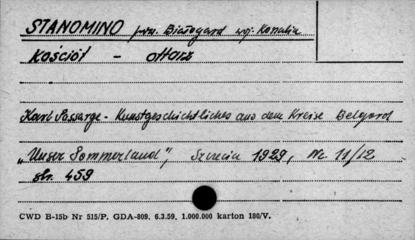 STANOMINO pow. Białogard woj. Konalin
Kościół - ołtarz
Karl Passarge - Kunstgeschichtliches aus dem Kreise Belgard
„Unser Pommerland", Szczecin 1929, Nr. 11/12
str. 459
CWD B-15b Nr 515/P. GDA-809. 6.3.59. 1.000.000 karton 180/V.